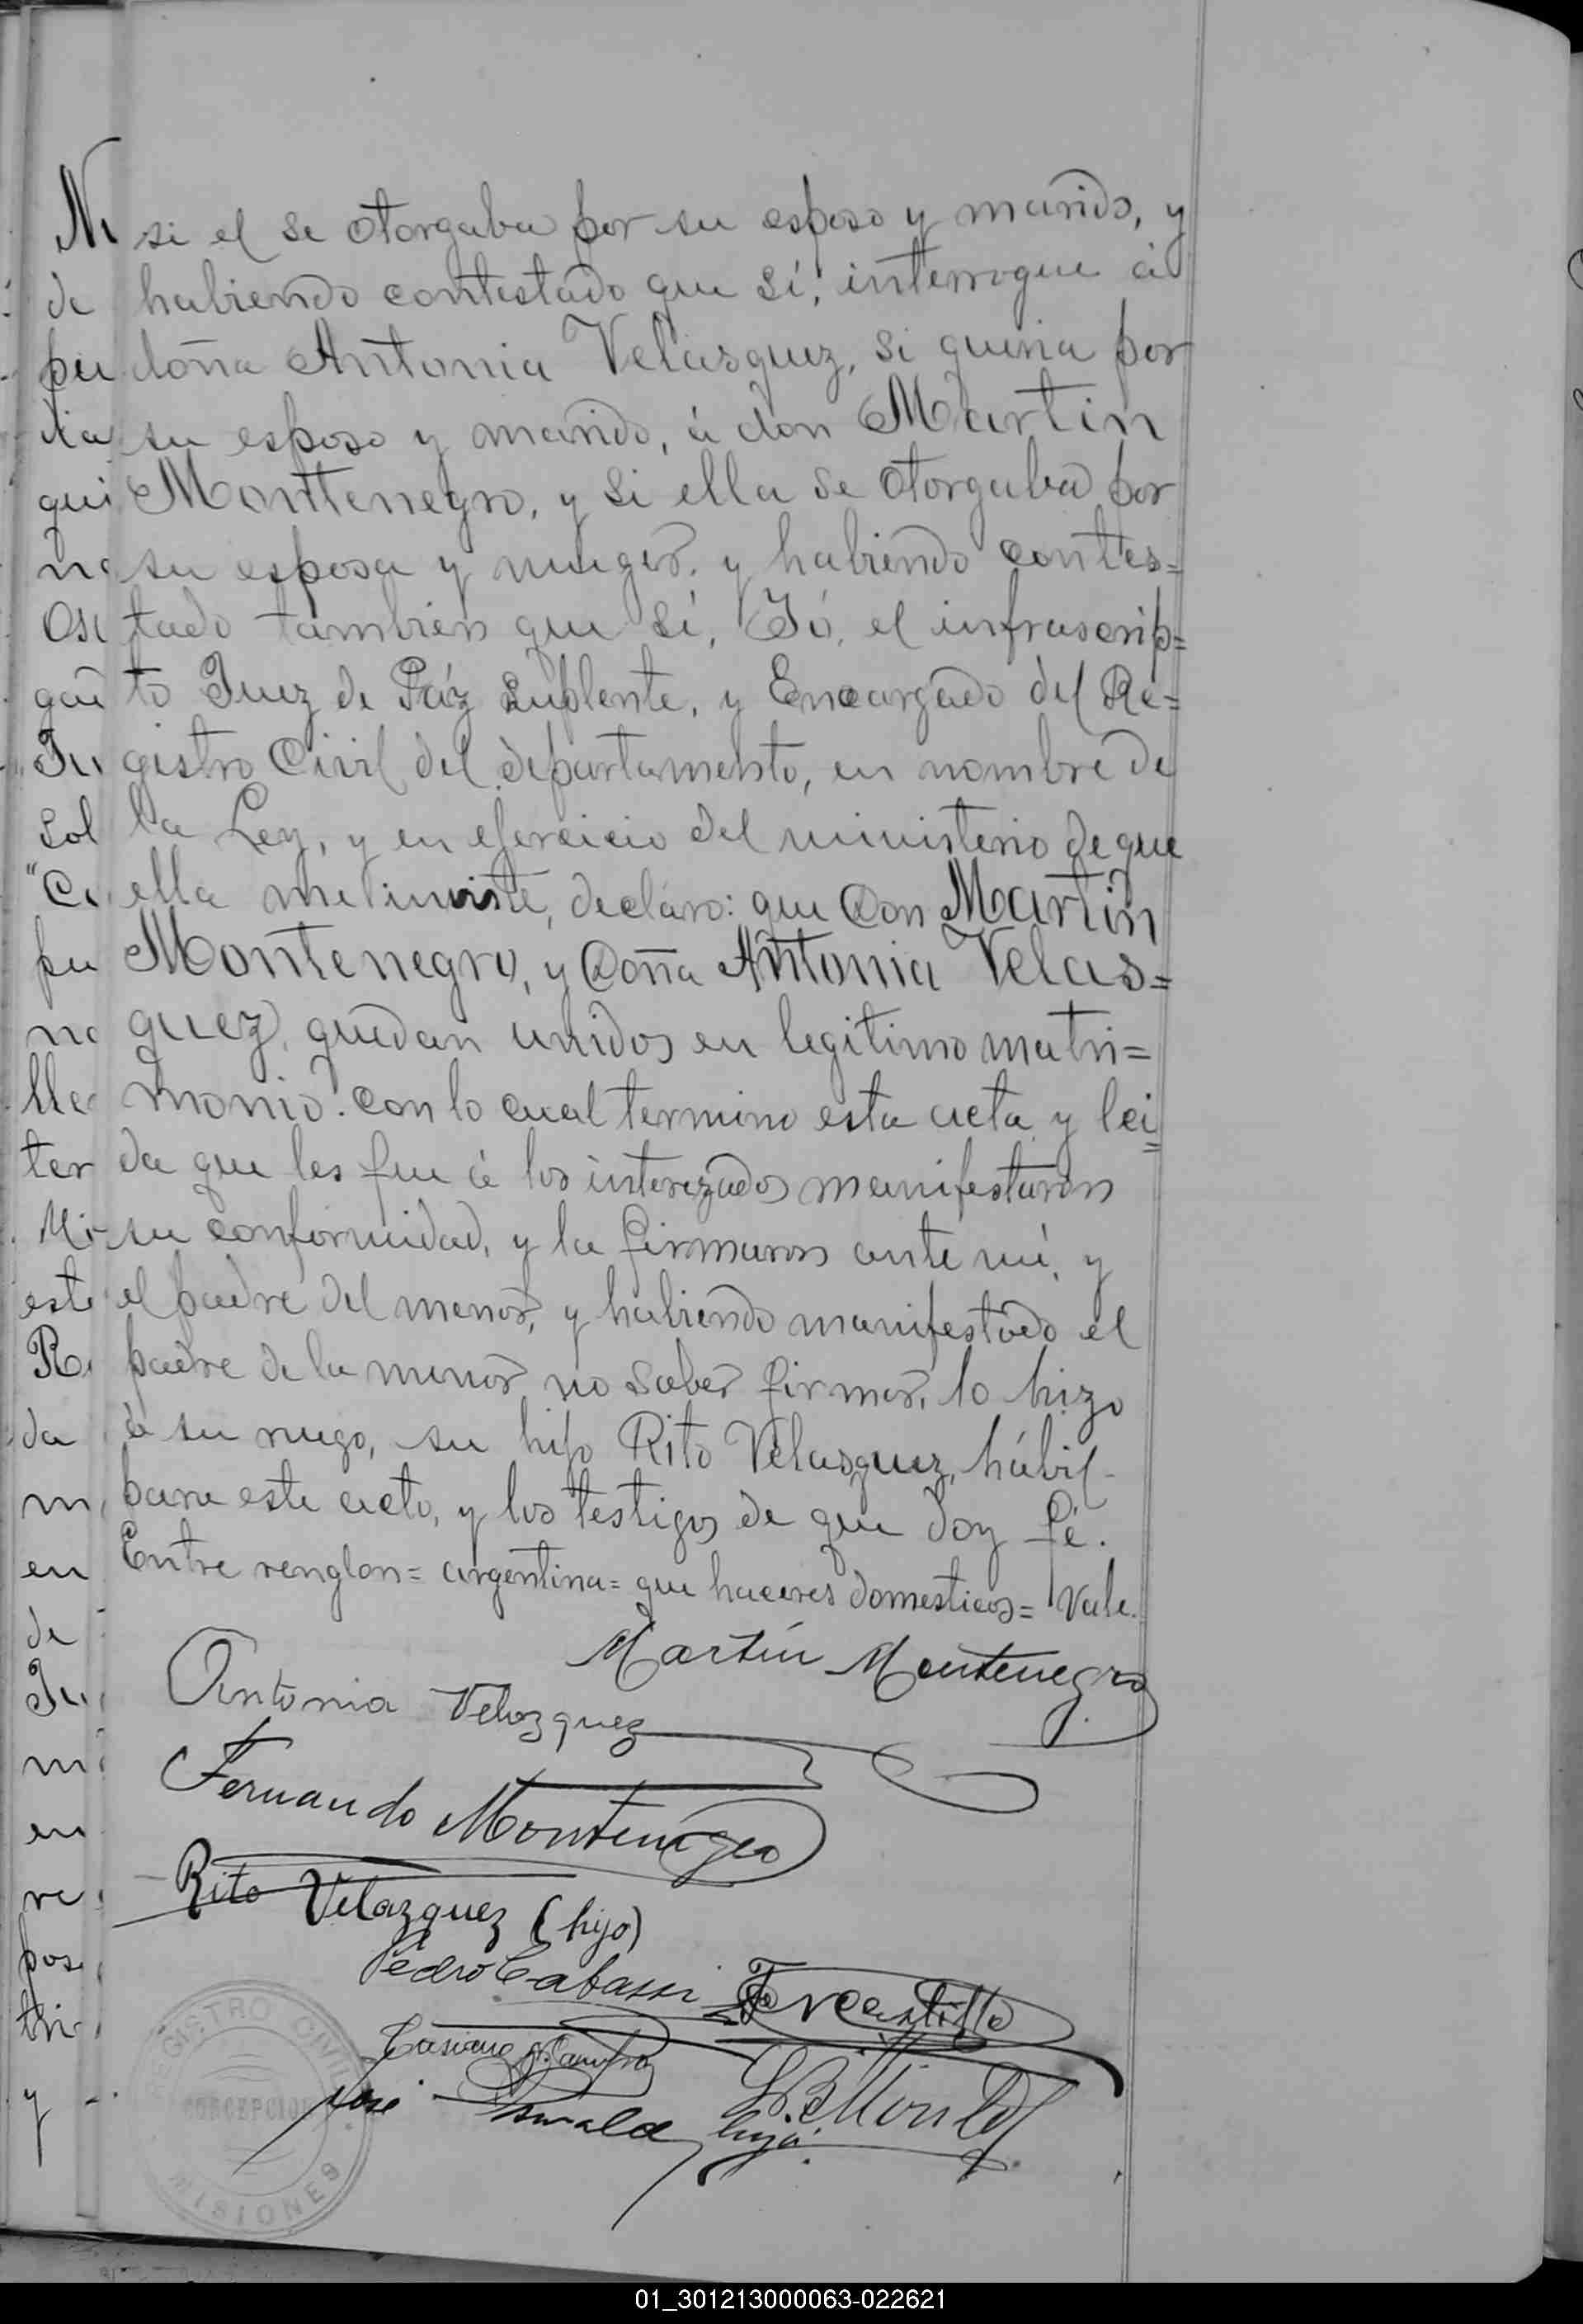 si el se otorgaba por su esposo y marido, y
habiendo contestado que sí; interrogue á
doña Antonia Velasquez, si queria por
su esposo y marido, á don Martin
Montenegro, y si ella se otorgaba por
su esposa y muger, y habiendo contes=
tado tambien que sí, Yó, el infrascrip=
to Juez de Páz Suplente, y Encargado del Re=
gistro Civil del departamento, en nombre de
la Ley, y en ejercicio del ministerio de que
ella me inviste, decláro: que Don Martin
Montenegro, y Doña Antonia Velas=
quez, quedan unidos en legitimo matri=
monio. con lo cual termino esta acta y lei=
da que les fue á los interezados manifestaron
su conformidad, y la firmaron ante mí, y
el padre del menor, y habiendo manifestado el
padre de la menor no saber firmar, lo hizo
á su ruego, su hijo Rito Velasquez, hábil
para este acto, y los testigos de que doy fé.
Entre renglon= argentina= que haceres domesticos= Vale.
Martín Montenegro
Antonia Velazquez
Fernando Montenegro
Rito Velazquez (hijo)
Pedro Cabassi
Castillo
José Oswald hijo
REGISTRO CIVIL
CONCEPCION
MISIONES
01_301213000063-022621